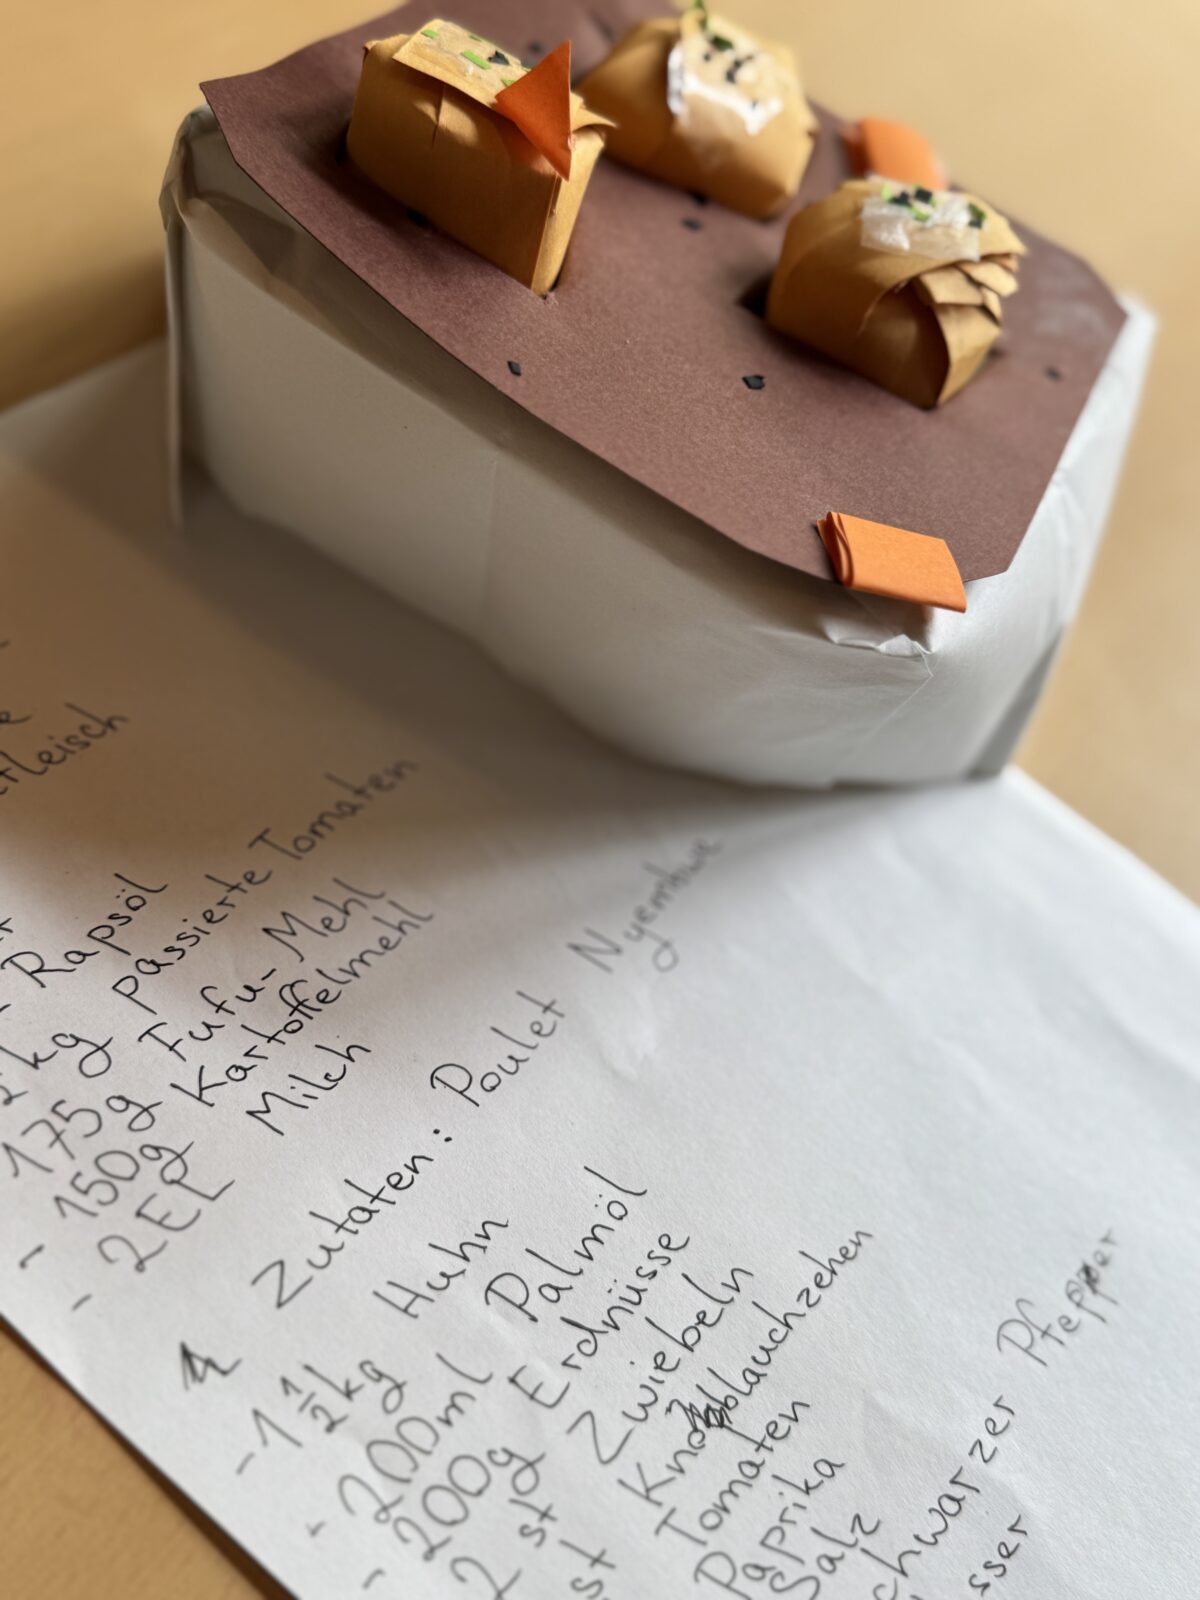 fleisch
Rapsöl
kg passierte Tomaten
175g Fufu-Mehl
- 150g Kartoffelmehl
- 2EL Milch
Zutaten: Poulet Nyembwe
- 1 1/2 kg Huhn
- 200ml Palmöl
- 200g Erdnüsse
2 st Zwiebeln
st Knoblauchzehen
Tomaten
Paprika
Salz
chwarzer Pfeffer
sser